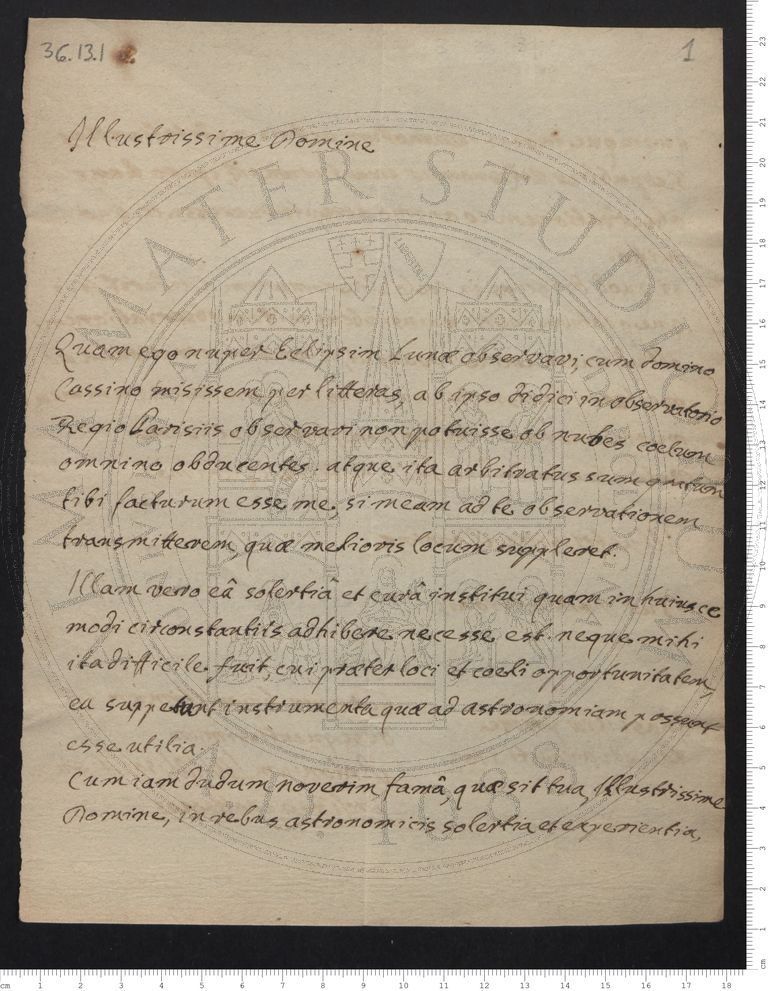 36.13.1
1
Illustrissime Domine
Quam ego nuper Eclipsim Lunæ observavi, cum domino
Cassino misissem per litteras, ab ipso didici in observatorio
Regio Parisiis observari non potuisse ob nubes coelum
omnino obducentes. atque ita arbitratus sum gratum
tibi facturum esse me, si meam ad te observationem
transmitterem, quæ melioris locum suppleret.
Illam vero eâ solertiâ et curâ institui quam in huiusce
modi circonstantiis adhibere necesse est. neque mihi
ita difficile fuit, cui præter loci et coeli opportunitatem,
ea suppetant instrumenta quæ ad astronomiam possunt
esse utilia.
Cum iam dudum noverim famâ, quæ sit tua, Illustrissime
Domine, in rebus astronomicis solertia et experientia,
ALMA MATER STUDIORUM
A.D. 1088
LIBERTAS